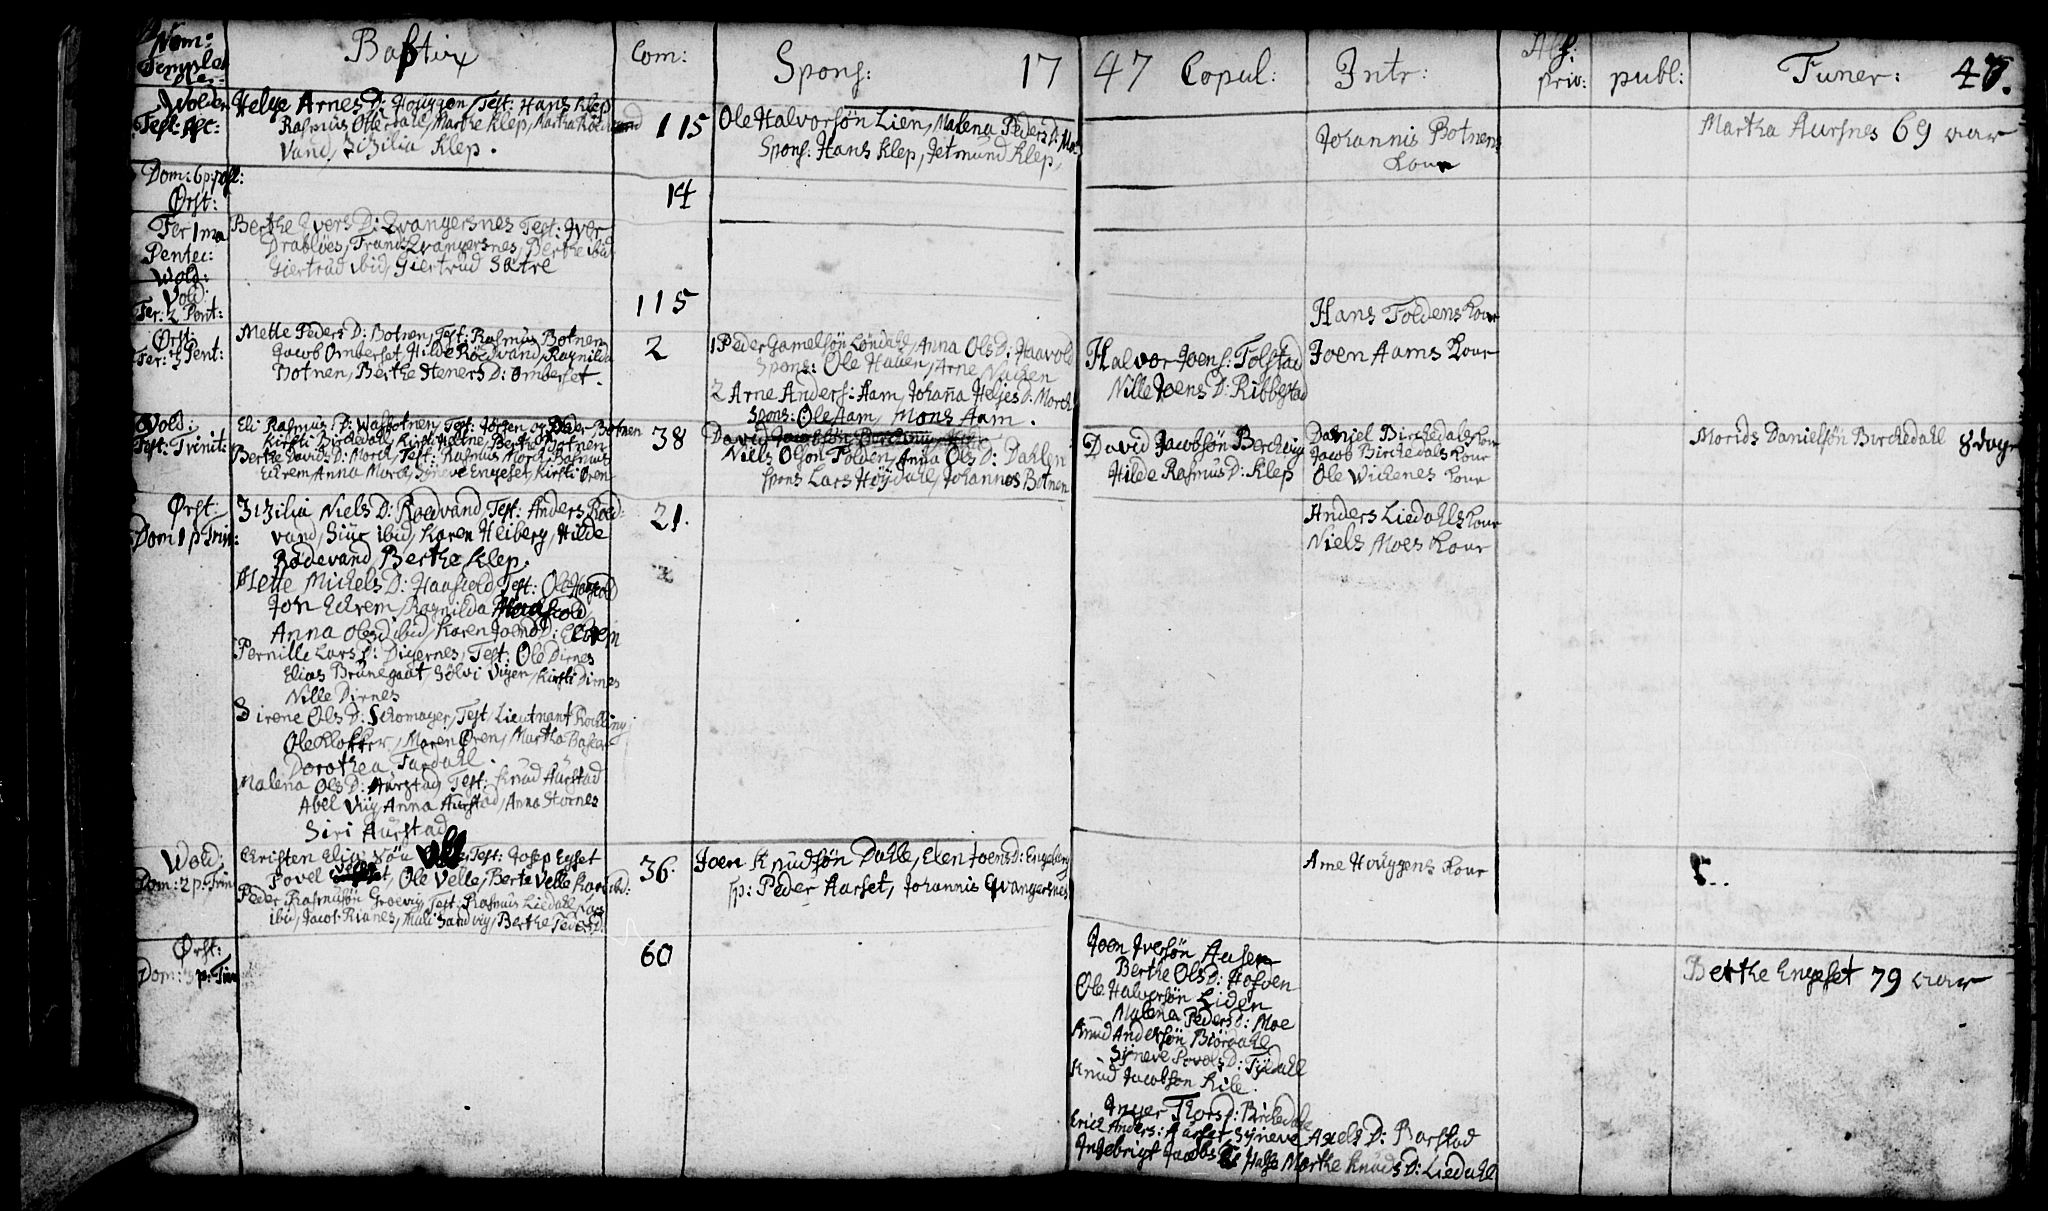 Nom:
Templo
Baptix
Com:
Spons:
17
47
Copul:
Intr:
Abs:
priv:
publ:
Funer:
47.
Wolden
Fest: Asc:
Helge Arnes D: Houggen, Test: Hans Klep
Rasmus Marthe Klep, Martha
vand, Zizilia Klep.
115
Ole Halvorsøn Lien, Malena Peders D: Moe
Spons: Hans Klep, Jetmund Klep,
Johannis Botnens
Kone
Martha Aursnes 69 aar
Dom: 6 p: pasc:
Ørst:
14
Fer 1ma
Pentec:
Wold:
Berthe Ivers D: Qvangersnes Test: Iver
Drabløes, Qvangersnes, Berthe ibid
Giertrud ibid, Giertrud Sætre
Vold:
Fer: 2 Pent:
115
Hans Foldens Kone
Ørst:
Fer: 3 Pent:
Mette Peders D: Botnen, Test: Rasmus Botnen
Jacob Omberset, Hilde Rødvand, Ragnilda
Botnen, Berthe Steners D: Omberset.
2
1 Peder Gamelsøn Løndahl, Anna Ols D: Haavold
Spons: Ole Halien, Arne
2 Arne Anders: Aam, Johana Helges D: Morch
Spons: Ole Aam, Mons Aam.
Halvor Joens: Folstad
Nille Joens D: Ribbestad
Joen Aams Kone
Vold:
Fest: Trinit:
Eli Rasmus D: Wasbotnen, Test: Jørgen og Peder Botnen
Kirsti Birchedahl, Kirsti Berthe Botnen
Berthe Davids D: Morch, Test: Rasmus Morch, Rasmus
Eckrem, Anna Morch, Syneve Engeset, Kirsti Øren
38
David Jacobsøn
Niels Olson Folden, Anna Ols D: Dahlen
Spons Lars Høydahl, Johannes Botnen
David Jacobsøn Berchvig
Hilde Rasmus D: Klep
Daniel Birchedals Kone
Jacob Birchedals Kone
Ole Wichenes Kone
Morids Danielsøn Birchedahl 8 dage
Ørst:
Dom 1 p: Trin:
Zizilia Niels D: Roedvand Test: Anders Roed:
vand, Siur ibid, Karen Heiberg, Hilde
Rødevand, Berthe Klep.
21.
Anders Liedahls Kone
Niels Moes Kone
Mette Michels D: Haafkold, Test: Ole
Jon Eckrem, Ragnilda
Anna Olsd ibid, Karen Joens D: Eckrem
Pernille Lars D: Digernes, Test: Ole Dirnes
Elias Brunegaat, Sølvi Vigen, Kirsti Dirnes
Nille Dirnes
Sirene Ols D: Schomager, Test, Lieutnant
Ole Klokker, Maren Øren, Martha
Dorothea Fardahl.
Malena Ols D: Aurstad, Test: Knud Aurstad
Abel Viig, Anna Aurstad, Anna Stornes
Siri Aurstad
Wold:
Dom: 2 p: Trin
Christen Elias Søn Test: Josep Egset
Povel Ole Velle, Berte Velle, Kari ibid:
Peder Rasmusøn Groevig, Test: Rasmus Liedahl, Lars
ibid, Jacob Rianes, Mali Sandvig, Berthe Peders D:
36.
Joen Knudsøn Dahle, Elen Joens D: Engeberg
sp: Peder Aarset, Johannis Qvangersnes
Arne Houggens Kone
Ørst:
Dom: 3 p: Trin
60
Joen Iversøn Aasen
Berthe Ols D: Hofven
Ole Halvorsøn Liden
Malena Peders D: Moe
Knud Andersøn Biørdahl
Syneve Povels D: Fyldahl
Knud Jacobsøn Kile.
Inger Thors D: Birchedahl
Erich Anders: Aarset, Syneve Axels D: Barstad
Injebrigt Jacobs Marthe Knuds D: Liedahl
Berthe Engeset 79 aar